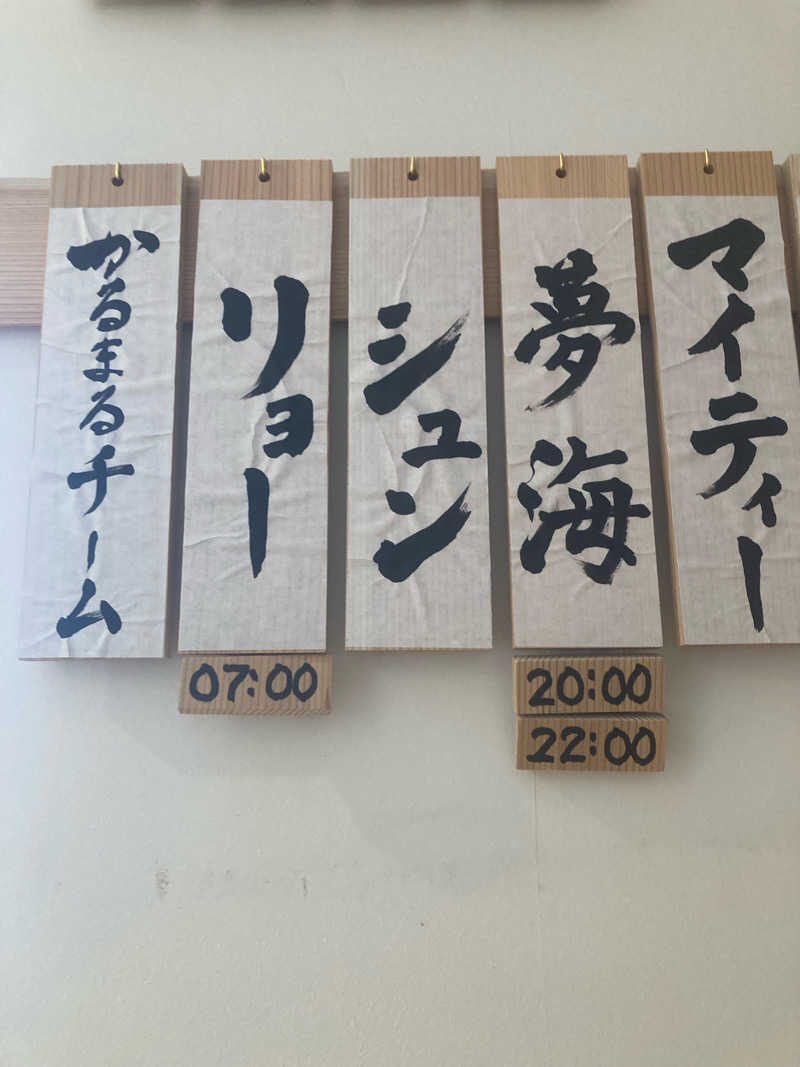 かるまるチーム
リョー
07:00
シュン
夢海
20:00
22:00
マイティー